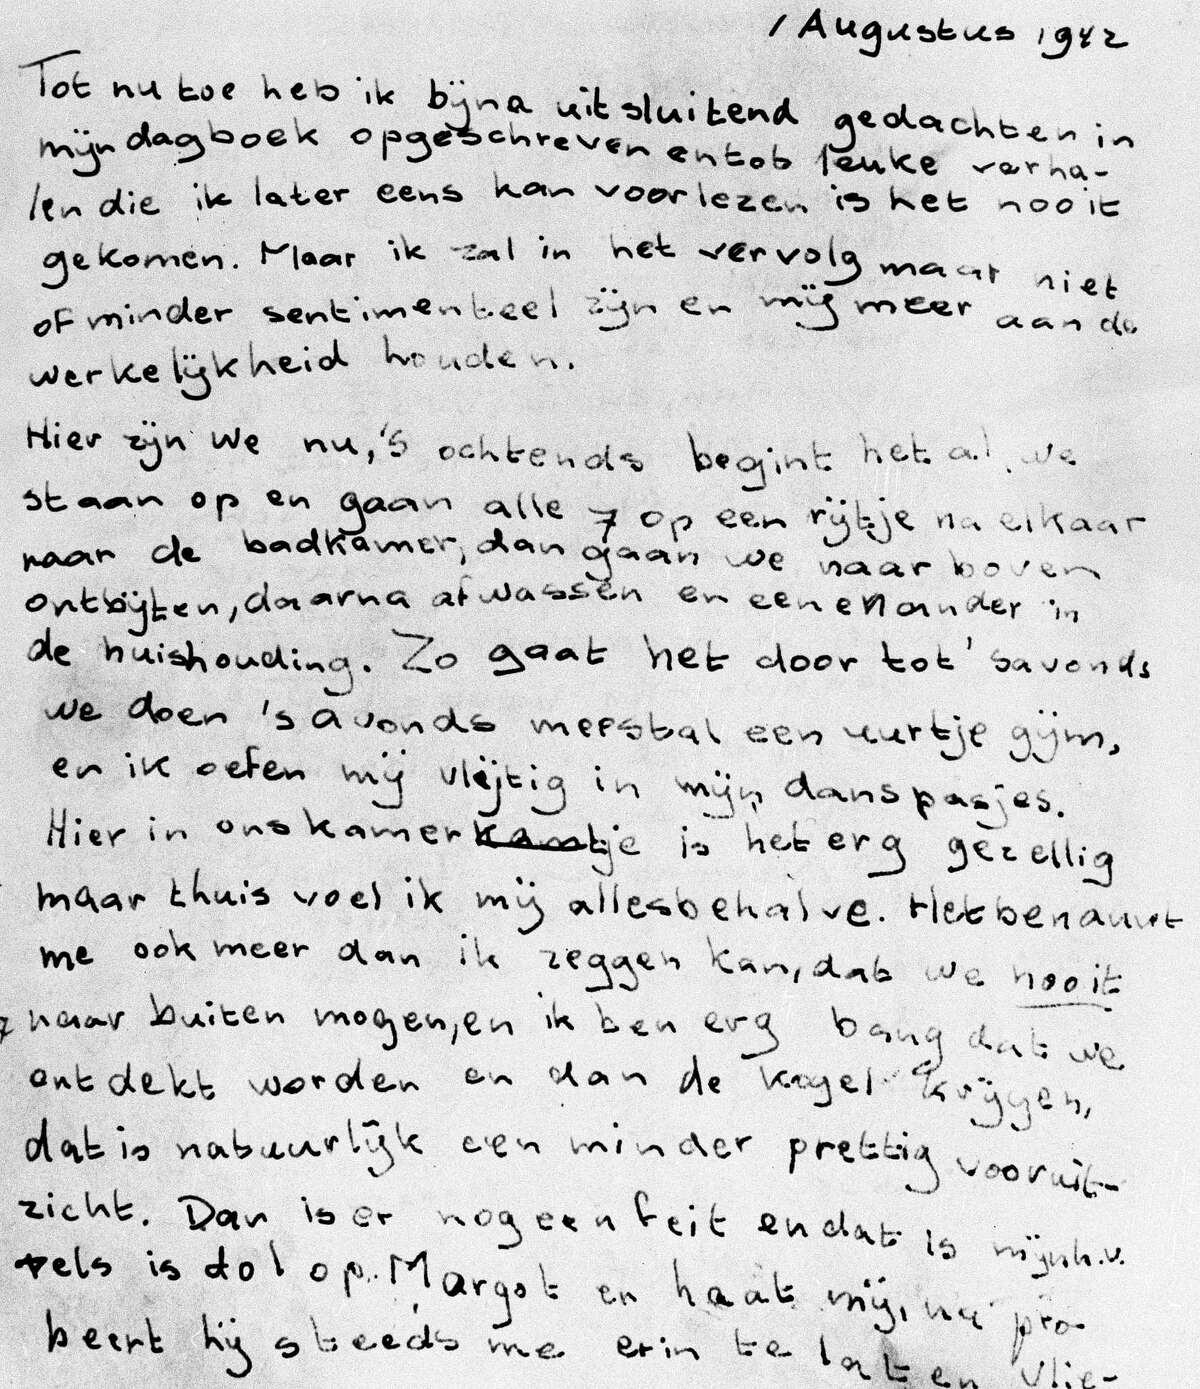 1 Augustus 1942
Tot nu toe heb ik bijna uitsluitend gedachten in
mijn dagboek opgeschreven en tot leuke verha-
len die ik later eens kan voorlezen is het nooit
gekomen. Maar ik zal in het vervolg maar niet
of minder sentimenteel zijn en mij meer aan de
werkelijkheid houden.
Hier zijn we nu, 's ochtends begint het al, we
staan op en gaan alle 7 op een rijtje na elkaar
naar de badkamer, dan gaan we naar boven
ontbijten, daarna afwassen en een en ander in
de huishouding. Zo gaat het door tot 's avonds
we doen 's avonds meestal een uurtje gijm,
en ik oefen mij vlijtig in mijn danspasjes.
Hier in ons kamerkamtje is het erg gezellig
maar thuis voel ik mij allesbehalve. Het benauwt
me ook meer dan ik zeggen kan, dat we nooit
naar buiten mogen, en ik ben erg bang dat we
ontdekt worden en dan de kogel krijgen,
dat is natuurlijk een minder prettig vooruit-
zicht. Dan is er nog een feit en dat is mijnh. v.
Pels is dol op Margot en haat mij, nu pro-
beert hij steeds me erin te laten vlie-